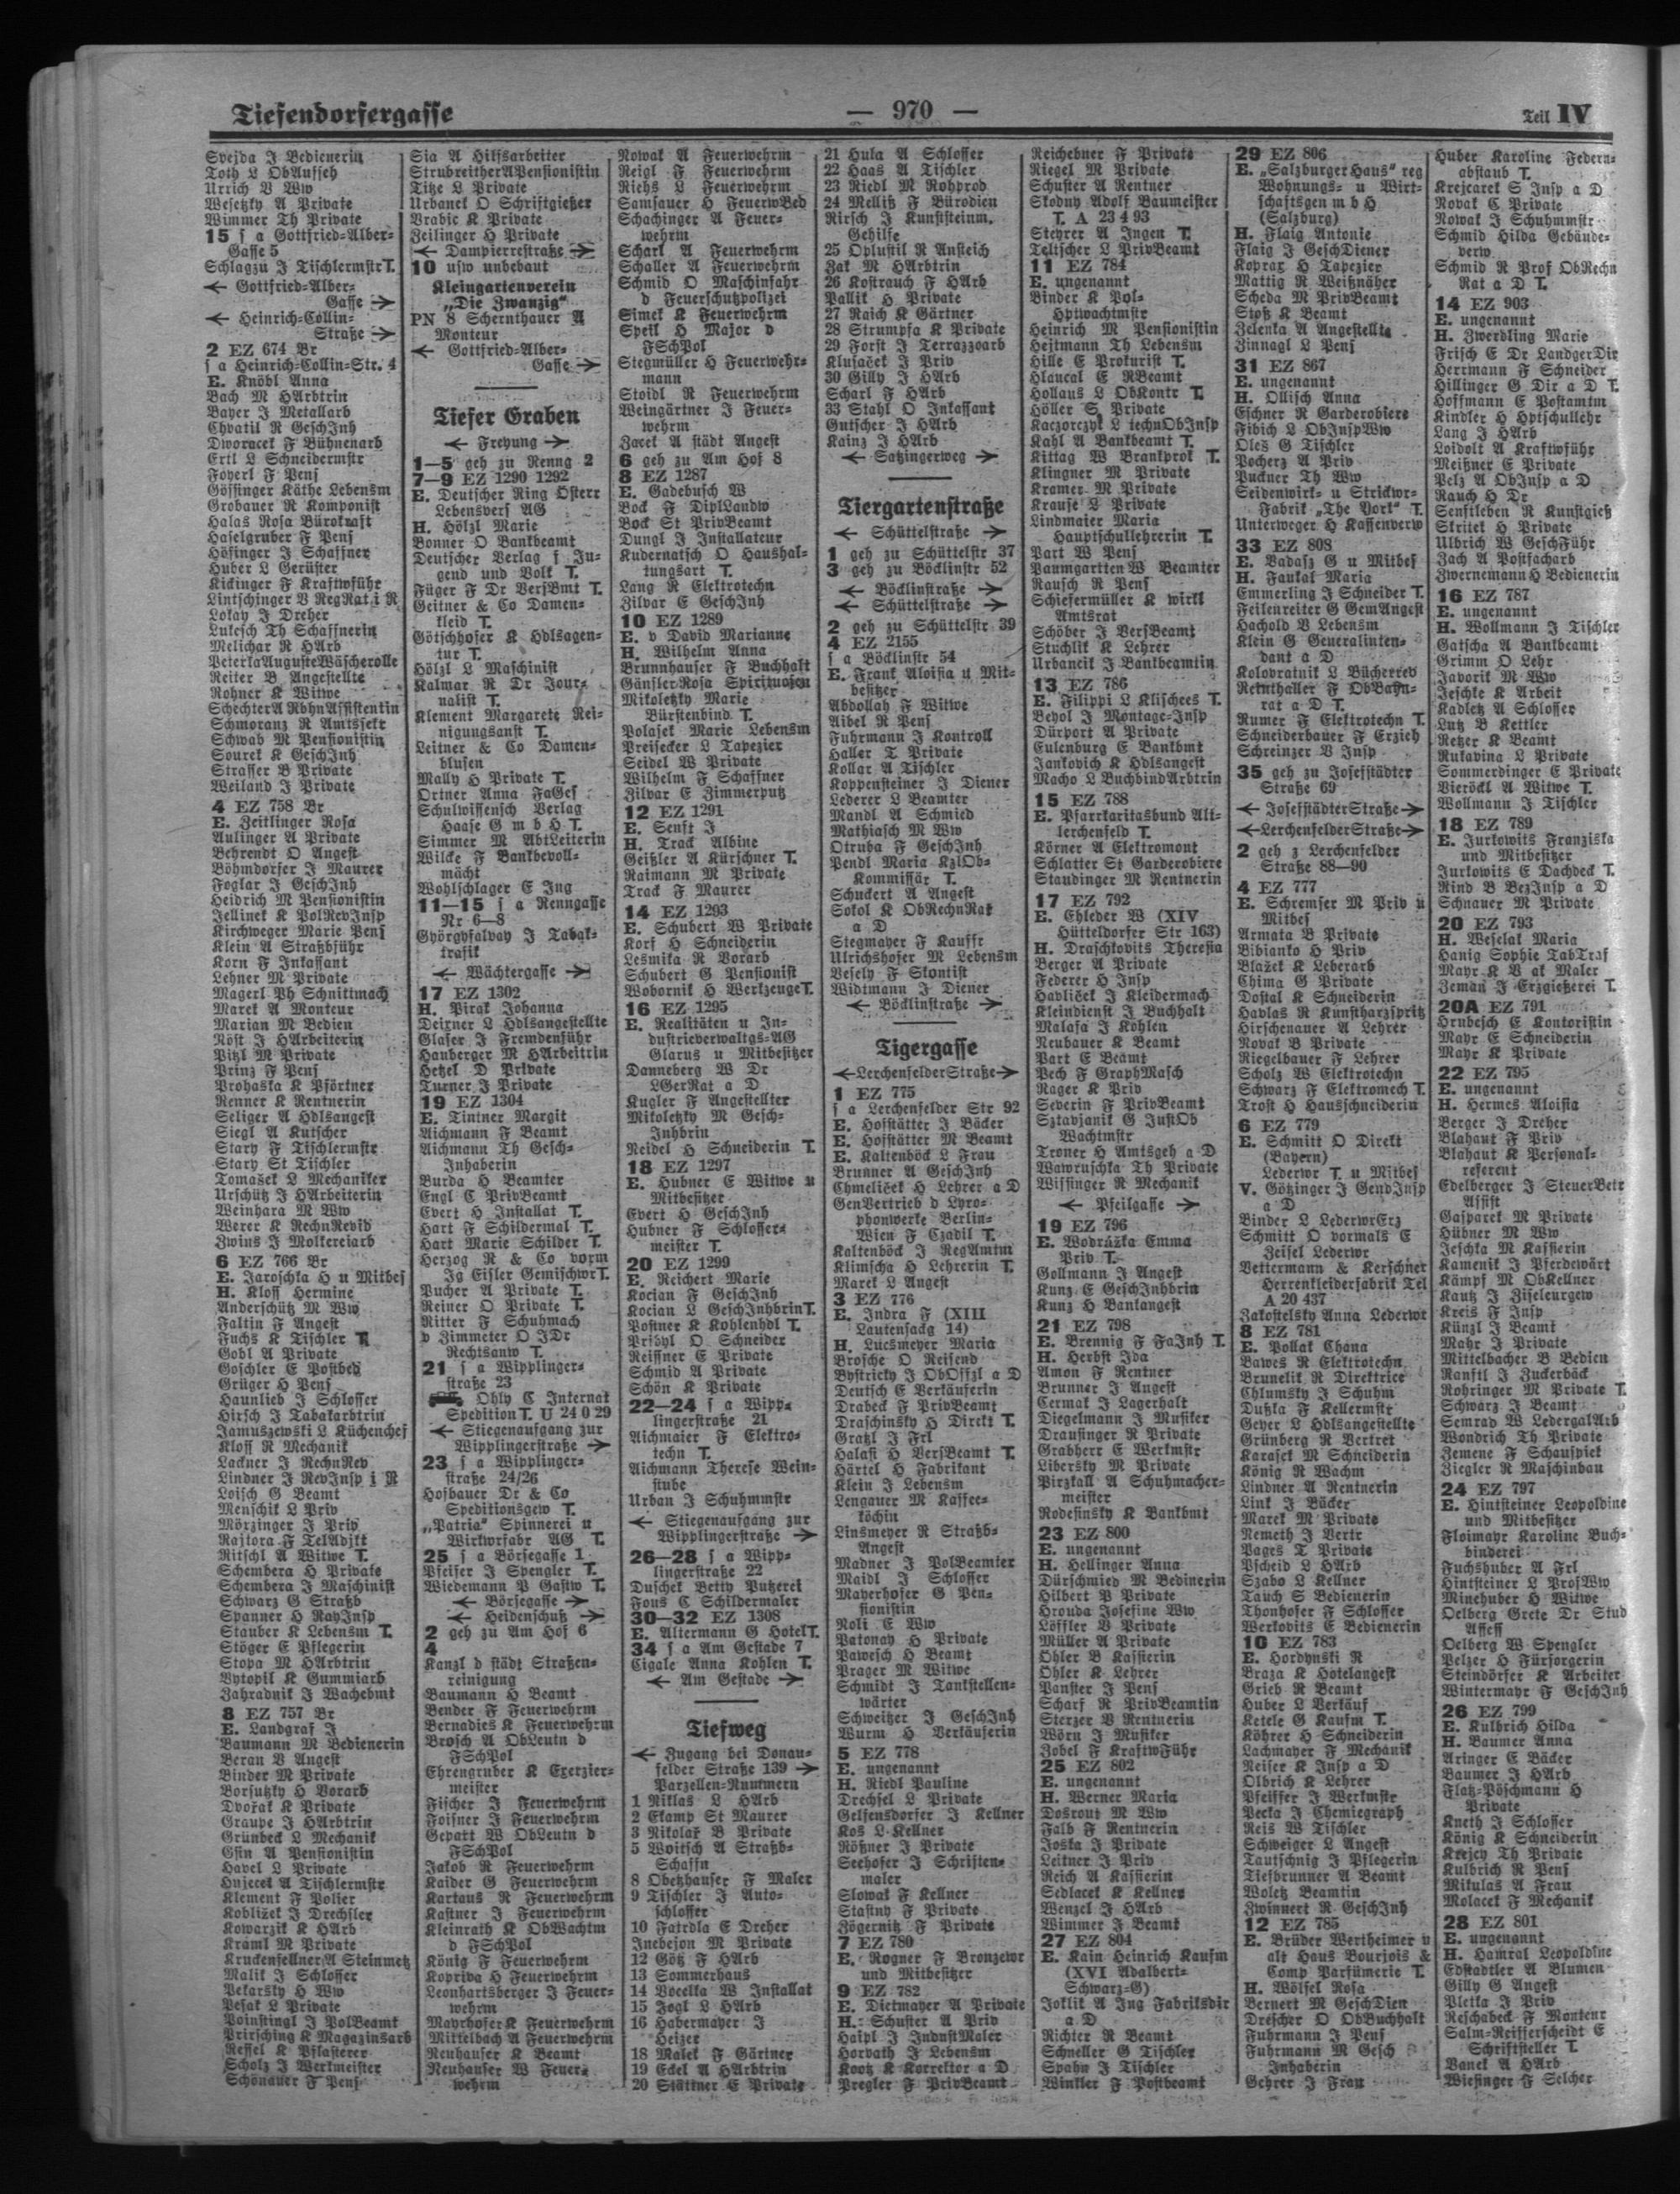 Tiefendorfergasse
— 970 —
Teil IV
Svejda J Bedienerin
Toth L ObAufseh
Urrich V Ww
Wesetzky A Private
Wimmer Th Private
15 s a Gottfried-Alber-
Gasse 5
Schlagzu J Tischlermstr T.
← Gottfried-Alber-
Gasse →
← Heinrich-Collin-
Straße →
2 EZ 674 Br
s a Heinrich-Collin-Str. 4
E. Knöbl Anna
Bach M HArbtrin
Bayer J Metallarb
Chvatil R GeschInh
Dworacek F Bühnenarb
Ertl L Schneidermstr
Foyerl F Pens
Gössinger Käthe Lebensm
Grobauer R Komponist
Halas Rosa Bürokraft
Haselgruber F Pens
Höfinger J Schaffner
Huber L Gerüster
Kickinger F Kraftwführ
Lintschinger V RegRat i R
Lokay J Dreher
Lukesch Th Schaffnerin
Melichar R HArb
Peterka Auguste Wäscherolle
Reiter B Angestellte
Rohner K Witwe
Schechter A RbhnAssistentin
Schmoranz R Amtssekr
Schwab M Pensionistin
Sourek K GeschInh
Strasser B Private
Weiland J Private
4 EZ 758 Br
E. Zeitlinger Rosa
Aulinger A Private
Behrendt O Angest
Böhmdorfer J Maurer
Foglar J GeschInh
Heidrich M Pensionistin
Jellinek K PolRevInsp
Kirchweger Marie Pens
Klein A Straßbführ
Korn F Inkassant
Lehner M Private
Magerl Ph Schnittmach
Marek A Monteur
Marian M Bedien
Nöst J HArbeiterin
Pitzl M Private
Prinz F Pens
Prohaska K Pförtner
Renner K Rentnerin
Seliger A Hdlsangest
Siegl A Kutscher
Stary F Tischlermstr
Stary St Tischler
Tomašek L Mechaniker
Urschütz J HArbeiterin
Weinhara M Ww
Werer K RechnRevid
Zwins J Molkereiarb
6 EZ 766 Br
E. Jaroschka H u Mitbes
H. Kloss Hermine
Anderschütz M Ww
Faltin F Angest
Fuchs K Tischler T.
Gobl A Private
Goschler E Postbed
Grüger H Pens
Haunlieb J Schlosser
Hirsch J Tabakarbtrin
Jamuszewski L Küchenchef
Kloss R Mechanik
Lackner J RechnRev
Lindner J RevInsp i R
Loisch G Beamt
Menschik L Priv
Mörzinger J Priv
Rajtora F TelAdjkt
Ritschl A Witwe T.
Schembera H Private
Schembera J Maschinist
Schwarz G Straßb
Spanner H RayInsp
Stauber K Lebensm T.
Stöger E Pflegerin
Stopa M HArbtrin
Vytopil K Gummiarb
Zahradnik J Wachebmt
8 EZ 757 Br
E. Landgraf J
Baumann M Bedienerin
Beran V Angest
Binder M Private
Borsutzky H Vorarb
Dvořak K Private
Graupe J HArbtrin
Grünbeck L Mechanik
Gsin A Pensionistin
Havel L Private
Hujecek A Tischlermstr
Klement F Polier
Kobližek J Drechsler
Kowarzik K HArb
Kraml M Private
Kruckenfellner A Steinmetz
Malik J Schlosser
Pekarsky H Ww
Pesak L Private
Poinstingl J PolBeamt
Prirsching K Magazinsarb
Ressel K Pflasterer
Scholz J Werkmeister
Schönauer F Pens
Sia A Hilfsarbeiter
Strubreither A Pensionistin
Titze L Private
Urbanek O Schriftgießer
Vrabic K Private
Zeilinger H Private
← Dampierrestraße →
10 usw unbebaut
Kleingartenverein
„Die Zwanzig“
PN 8 Schernthauer A
Monteur
← Gottfried-Alber-
Gasse →
Tiefer Graben
← Freyung →
1—5 geh zu Renng 2
7—9 EZ 1290 1292
E. Deutscher Ring Österr
Lebensvers AG
H. Hölzl Marie
Bonner O Bankbeamt
Deutscher Verlag f Ju-
gend und Volk T.
Füger F Dr VersBmt T.
Geitner & Co Damen-
kleid T.
Götschhofer K Hdlsagen-
tur T.
Hölzl L Maschinist
Kalmar R Dr Jour-
nalist T.
Klement Margarete Rei-
nigungsanst T.
Leitner & Co Damen-
blusen
Mally H Private T.
Ortner Anna FaGes
Schulwissensch Verlag
Haase G m b H T.
Simmer M AbtLeiterin
Wilcke F Bankbevoll-
mächt
Wohlschlager E Ing
11—15 s a Renngasse
Nr 6—8
Györgyfalvay J Tabak-
trafik
← Wächtergasse →
17 EZ 1302
H. Pirak Johanna
Deixner L Hdlsangestellte
Glaser J Fremdenführ
Hauberger M HArbeitrin
Hetzel D Private
Turner J Private
19 EZ 1304
E. Tintner Margit
Aichmann F Beamt
Aichmann Th Gesch-
Inhaberin
Burda H Beamter
Engl C PrivBeamt
Evert H Installat T.
Hart F Schildermal T.
Hart Marie Schilder T.
Herzog R & Co vorm
Jg Eisler Gemischwr T.
Pucher A Private T.
Reiner O Private T.
Ritter F Schuhmach
v Zimmeter O JDr
Rechtsanw T.
21 s a Wipplinger-
straße 23
Ohly C Internat
Spedition T. U 24 0 29
← Stiegenaufgang zur
Wipplingerstraße →
23 s a Wipplinger-
straße 24/26
Hofbauer Dr & Co
Speditionsgew T.
„Patria“ Spinnerei u
Wirkwfabr AG T.
25 s a Börsegasse 1
Pfeifer J Spengler T.
Wiedemann P Gastw T.
← Börsegasse →
← Heidenschuß →
2 geh zu Am Hof 6
4
Kanzl d städt Straßen-
reinigung
Baumann H Beamt
Bender F Feuerwehrm
Bernadies K Feuerwehrm
Brosch A ObLeutn d
FSchPol
Ehrengruber K Exerzier-
meister
Fischer J Feuerwehrm
Foissner J Feuerwehrm
Gepatt W ObLeutn d
FSchPol
Jakob R Feuerwehrm
Kaider G Feuerwehrm
Kartaus R Feuerwehrm
Kastner J Feuerwehrm
Kleinrath K ObWachtm
d FSchPol
König F Feuerwehrm
Kopriva H Feuerwehrm
Leonhartsberger J Feuer-
wehrm
Mayrhofer K Feuerwehrm
Mittelbach A Feuerwehrm
Neuhauser K Beamt
Neuhauser W Feuer-
wehrm
Nowak A Feuerwehrm
Reigl F Feuerwehrm
Riehs L Feuerwehrm
Samsauer H FeuerwBed
Schachinger A Feuer-
wehrm
Scharl A Feuerwehrm
Schaller A Feuerwehrm
Schmid O Maschinfahr
d Feuerschutzpolizei
Simek K Feuerwehrm
Speil H Major d
FSchPol
Stegmüller H Feuerwehr-
mann
Stoidl R Feuerwehrm
Weingärtner J Feuer-
wehrm
Zacek A städt Angest
6 geh zu Am Hof 8
8 EZ 1287
E. Gadebusch W
Bock F DiplLandw
Bock St PrivBeamt
Dungl J Installateur
Kudernatsch O Haushal-
tungsart T.
Lang R Elektrotechn
Zilvar E GeschInh
10 EZ 1289
E. v David Marianne
H. Wilhelm Anna
Brunnhauser F Buchhalt
Gänsler Rosa Spirituosen
Mikoletzky Marie
Bürstenbind T.
Polasek Marie Lebensm
Preisecker L Tapezier
Seidel W Private
Wilhelm F Schaffner
Zilvar E Zimmerputz
12 EZ 1291
E. Senft J
H. Track Albine
Geißler A Kürschner T.
Raimann M Private
Track F Maurer
14 EZ 1293
E. Schubert W Private
Korf H Schneiderin
Lesmika R Vorarb
Schubert G Pensionist
Wobornik H Werkzeuge T.
16 EZ 1295
E. Realitäten u In-
dustrieverwaltgs-AG
Glarus u Mitbesitzer
Danneberg W Dr
LGerRat a D
Kugler F Angestellter
Mikoletzky M Gesch-
Inhbrin
Neidel H Schneiderin T.
18 EZ 1297
E. Hubner E Witwe u
Mitbesitzer
Evert H GeschInh
Hubner F Schlosser-
meister T.
20 EZ 1299
E. Reichert Marie
Kocian F GeschInh
Kocian L GeschInhbrin T.
Postner K Kohlenhdl T.
Pribyl O Schneider
Reissner E Private
Schmid A Private
Schön K Private
22—24 s a Wipp-
lingerstraße 21
Aichmaier F Elektro-
techn T.
Aichmann Therese Wein-
stube
Urban J Schuhmmstr
← Stiegenaufgang zur
Wipplingerstraße →
26—28 s a Wipp-
lingerstraße 22
Duschek Betty Putzerei
Fous C Schildermaler
30—32 EZ 1308
E. Altermann G Hotel T.
34 s a Am Gestade 7
Cigale Anna Kohlen T.
← Am Gestade →
Tiefweg
← Zugang bei Donau-
felder Straße 139 →
Parzellen-Nummern
1 Niklas L HArb
2 Ekamp St Maurer
3 Nikolař B Private
5 Woitsch A Straßb-
Schaffn
8 Obetzhauser F Maler
9 Tischler J Auto-
schlosser
10 Fatrdla E Dreher
Jnebejon M Private
12 Götz F HArb
13 Sommerhaus
14 Vocelka W Installat
15 Jogl L HArb
16 Habermayer J
Heizer
18 Malek F Gärtner
19 Eckel A HArbtrin
20 Stättner E Private
21 Hula A Schlosser
22 Haas A Tischler
23 Riedl M Rohprod
24 Melliß F Bürodien
Kirsch J Kunststeinm.
Gehilfe
25 Oplustil R Anstreich
Zak M HArbtrin
26 Kostrauch F HArb
Pallik H Private
27 Raich K Gärtner
28 Strumpfa K Private
29 Forst J Terrazzoarb
Klusaček J Priv
30 Gilly J HArb
Scharl F HArb
33 Stahl O Inkassant
Gutscher J HArb
Kainz J HArb
← Satzingerweg →
Tiergartenstraße
← Schüttelstraße →
1 geh zu Schüttelstr 37
3 geh zu Böcklinstr 52
← Böcklinstraße →
← Schüttelstraße →
2 geh zu Schüttelstr 39
4 EZ 2155
s a Böcklinstr 54
E. Frank Aloisia u Mit-
besitzer
Abdollah F Witwe
Aibel R Pens
Fuhrmann J Kontroll
Haller T Private
Kollar A Tischler
Koppensteiner J Diener
Lederer L Beamter
Mandl A Schmied
Mathiasch M Ww
Otruba F GeschInh
Pendl Maria KzlOb-
Kommissär T.
Schuckert A Angest
Sokol K ObRechnRat
a D
Stegmayer F Kaufsr
Ulrichshofer M Lebensm
Vesely F Skontist
Widtmann J Diener
← Böcklinstraße →
Tigergasse
← Lerchenfelder Straße →
1 EZ 775
s a Lerchenfelder Str 92
E. Hofstätter J Bäcker
E. Hofstätter M Beamt
E. Kaltenböck L Frau
Brunner A GeschInh
Chmeliček H Lehrer a D
GenVertrieb d Lyro-
phonwerke Berlin-
Wien F Czadil T.
Kaltenböck J RegAmtm
Klimscha H Lehrerin T.
Marek L Angest
3 EZ 776
E. Indra F (XIII
Lautensackg 14)
H. Lucsmeyer Maria
Brosche O Reisend
Bystricky J ObOffzl a D
Deutsch E Verkäuferin
Drabeck F PrivBeamt
Draschinsky H Direkt T.
Gratzl J Frl
Halasi H VersBeamt T.
Härtel H Fabrikant
Klein J Lebensm
Lengauer M Kaffee-
köchin
Linsmeyer R Straßb-
Angest
Madner J PolBeamter
Maidl J Schlosser
Mayerhofer G Pen-
sionistin
Noli E Ww
Patonay H Private
Pawesch H Beamt
Prager M Witwe
Schmidt J Tankstellen-
wärter
Schweitzer J GeschInh
Wurm H Verkäuferin
5 EZ 778
E. ungenannt
H. Riedl Pauline
Drechsel L Private
Gelsensdorfer J Kellner
Kos L Kellner
Rößner J Private
Seehofer J Schriften-
maler
Slowak F Kellner
Stastny F Private
Zögernitz F Private
7 EZ 780
E. Rogner F Bronzewr
und Mitbesitzer
9 EZ 782
E. Dietmayer A Private
H. Schuster A Priv
Haipl J IndustMaler
Horvath J Lebensm
Kootz K Korrektor a D
Pregler F PrivBeamt
Reichebner F Private
Riegel M Private
Schuster A Rentner
Skodny Adolf Baumeister
T. A 23 4 93
Steyrer A Ingen T.
Teltscher L PrivBeamt
11 EZ 784
E. ungenannt
Binder K Pol-
Hptwachtmstr
Heinrich M Pensionistin
Hejtmann Th Lebensm
Hille E Prokurist T.
Hlaucal E RBeamt
Hollaus L ObKontr T.
Höller S Private
Kaczorczyk L technObInsp
Kahl A Bankbeamt T.
Kittag W Brankprok T.
Klingner M Private
Kramer M Private
Krause L Private
Lindmaier Maria
Hauptschullehrerin T.
Part W Pens
Paumgartten W Beamter
Rausch R Pens
Schiefermüller K wirkl
Amtsrat
Schöber J VersBeamt
Stuchlik K Lehrer
Urbancik J Bankbeamtin
13 EZ 786
E. Filippi L Klischees T.
Beyol J Montage-Insp
Dürport A Private
Eulenburg E Bankbmt
Jankovich K Hdlsangest
Macho L BuchbindArbtrin
15 EZ 788
E. Pfarrkaritasbund Alt-
lerchenfeld T.
Körner A Elektromont
Schlatter St Garderobiere
Staudinger M Rentnerin
17 EZ 792
E. Ehleder W (XIV
Hütteldorfer Str 163)
H. Draschkovits Theresia
Berger A Private
Federer H Insp
Havliček J Kleidermach
Kleindienst J Buchhalt
Malasa J Kohlen
Neubauer K Beamt
Part E Beamt
Pech F GraphMasch
Rager K Priv
Severin F PrivBeamt
Sztavjanik G JustOb
Wachtmstr
Troner H Amtsgeh a D
Wawruschka Th Private
Wissinger R Mechanik
← Pfeilgasse →
19 EZ 796
E. Wodrážka Emma
Priv T.
Gollmann J Angest
Kunz E GeschInhbrin
Kunz H Bankangest
21 EZ 798
E. Brennig F FaInh T.
H. Herbst Ida
Amon F Rentner
Brunner J Angest
Cermak J Lagerhalt
Diegelmann J Musiker
Drausinger R Private
Grabherr E Werkmstr
Libersky M Private
Pirzkall A Schuhmacher-
meister
Rodesinsky K Bankbmt
23 EZ 800
E. ungenannt
H. Hellinger Anna
Dürschmied M Bedinerin
Hilbert P Private
Hrouda Josefine Ww
Löffler V Private
Müller A Private
Ohler B Kassierin
Ohler K Lehrer
Panster J Pens
Scharf R PrivBeamtin
Sterzer V Rentnerin
Wörn J Musiker
Zobel F KraftwFühr
25 EZ 802
E. ungenannt
H. Werner Maria
Dosrout M Ww
Falb F Rentnerin
Joska J Private
Leitner J Priv
Reich A Kassierin
Sedlacek K Kellner
Wenzel J HArb
Wimmer J Beamt
27 EZ 804
E. Kain Heinrich Kaufm
(XVI Adalbert-
Schwarz-G)
Joklik A Ing Fabriksdir
a D
Richter R Beamt
Schneller G Tischler
Spahn J Tischler
Winkler F Postbeamt
29 EZ 806
E. „Salzburger Haus“ reg
Wohnungs- u Wirt-
schaftsgen m b H
(Salzburg)
H. Flaig Antonie
Flaig J GeschDiener
Koprax H Tapezier
Mattig R Weißnäher
Scheda M PrivBeamt
Stoß K Beamt
Zelenka A Angestellte
Zinnagl L Pens
31 EZ 867
E. ungenannt
H. Ollisch Anna
Eschner R Garderobiere
Fibich L ObInspWw
Oleš G Tischler
Pocherz A Priv
Puckner Th Ww
Seidenwirk- u Strickwr-
Fabrik „The York“ T.
Unterweger H Kassenverw
33 EZ 808
E. Badasz G u Mitbes
H. Faukal Maria
Emmerling J Schneider T.
Feilenreiter G GemAngest
Hachold V Lebensm
Klein G Generalinten-
dant a D
Kolovratnik L Bücherrev
Reinthaller F ObBahn-
rat a D T.
Rumer F Elektrotechn T.
Schneiderbauer F Erzieh
Schreinzer V Insp
35 geh zu Josefstädter
Straße 69
← Josefstädter Straße →
← Lerchenfelder Straße →
2 geh z Lerchenfelder
Straße 88—90
4 EZ 777
E. Schremser M Priv u
Mitbes
Armata B Private
Bibianko H Priv
Blažek K Lederarb
Chima G Private
Dostal K Schneiderin
Havlas R Kunstharzspritz
Hirschenauer A Lehrer
Novak B Private
Riegelbauer F Lehrer
Scholz W Elektrotechn
Schwarz F Elektromech T.
Trost H Hausschneiderin
6 EZ 779
E. Schmitt O Direkt
(Bayern)
Lederwr T. u Mitbes
V. Götzinger J GendInsp
a D
Binder L LederwrErz
Schmitt O vormals E
Zeisel Lederwr
Vettermann & Kerschner
Herrenkleiderfabrik Tel
A 20 437
Zakostelsky Anna Lederwr
8 EZ 781
E. Pollak Chana
Bawes R Elektrotechn
Brunelik R Direktrice
Chlumsky J Schuhm
Dußka F Kellermstr
Geyer L Hdlsangestellte
Grünberg R Vertret
Karasek M Schneiderin
König R Wachm
Lindner A Rentnerin
Link J Bäcker
Marek M Private
Nemeth J Vertr
Pages T Private
Pscheid L HArb
Szabo L Kellner
Tauch S Bedienerin
Thonhofer F Schlosser
Werkovits E Bedienerin
10 EZ 783
E. Hordynski R
Braza K Hotelangest
Grieb R Beamt
Huber L Verkäuf
Ketele G Kaufm T.
Köhrer H Schneiderin
Lachmayer F Mechanik
Reiser K Insp a D
Olbrich K Lehrer
Pfeiffer J Werkmstr
Pecka J Chemiegraph
Reis W Tischler
Schweiger L Angest
Tautschnig J Pflegerin
Tiefbrunner A Beamt
Woletz Beamtin
Zwinnert R GeschInh
12 EZ 785
E. Brüder Wertheimer u
alt Haus Bourjois &
Comp Parfümerie T.
H. Wölfel Rosa
Bernert M GeschDien
Drescher O ObBuchhalt
Fuhrmann J Pens
Fuhrmann M Gesch
Inhaberin
Gehrer J Frau
Huber Karoline Federn-
abstaub T.
Krejcarek S Insp a D
Novak C Private
Nowak J Schuhmmstr
Schmid Hilda Gebäude-
verw
Schmid R Prof ObRechn
Rat a D T.
14 EZ 903
E. ungenannt
H. Zwerdling Marie
Frisch E Dr LandgerDir
Herrmann F Schneider
Hillinger G Dir a D T.
Hoffmann E Postamtm
Kindler H Hptschullehr
Lang J HArb
Loidolt A Kraftwführ
Meißner E Private
Pelz A ObInsp a D
Rauch H Dr
Senftleben R Kunstgieß
Skritek H Private
Ulbrich W GeschFühr
Zach A Postfacharb
Zwernemann H Bedienerin
16 EZ 787
E. ungenannt
H. Wollmann J Tischler
Gatscha A Bankbeamt
Grimm O Lehr
Javorik M Ww
Jeschke K Arbeit
Kadletz A Schlosser
Lutz B Kettler
Retzer K Beamt
Rukavina L Private
Sommerdinger E Private
Vieröckl A Witwe T.
Wollmann J Tischler
18 EZ 789
E. Jurkowits Franziska
und Mitbesitzer
Jurkowits E Dachdeck T.
Rind B BezInsp a D
Schnauer M Private
20 EZ 793
H. Weselak Maria
Hanig Sophie TabTraf
Mayr K V ak Maler
Zeman J Erzgießerei T.
20A EZ 791
Hrubesch E Kontoristin
Mayr E Schneiderin
Mayr K Private
22 EZ 795
E. ungenannt
H. Hermes Aloisia
Berger J Dreher
Blahaut F Priv
Blahaut K Personal-
referent
Edelberger J SteuerBetr
Assist
Gasparek M Private
Hübner M Ww
Jeschka M Kassierin
Kamenik J Pferdewärt
Kämpf M ObKellner
Kautz J Ziseleurgew
Kreis F Insp
Künzl J Beamt
Mahr J Private
Mittelbacher B Bedien
Ranftl J Zuckerbäck
Rohringer M Private T.
Schwarz J Beamt
Semrad W LedergalArb
Wondrich Th Private
Zemene F Schauspiel
Ziegler R Maschinbau
24 EZ 797
E. Hintsteiner Leopoldine
und Mitbesitzer
Floimayr Karoline Buch-
binderei
Fuchshuber A Frl
Hintsteiner L ProfWw
Minehuber H Witwe
Oelberg Grete Dr Stud
Assess
Oelberg W Spengler
Pelzer H Fürsorgerin
Steindörfer K Arbeiter
Wintermayr F GeschInh
26 EZ 799
E. Kulbrich Hilda
H. Baumer Anna
Aringer E Bäcker
Baumer J HArb
Flatz-Pöschmann H
Private
Kneth J Schlosser
König K Schneiderin
Krejcy Th Private
Kulbrich R Pens
Mikulas A Frau
Molacek F Mechanik
28 EZ 801
E. ungenannt
H. Hamral Leopoldine
Edstadtler A Blumen
Gilly G Angest
Pletka J Priv
Reschabeck F Monteur
Salm-Reifferscheidt E
Schriftsteller T.
Vanek A HArb
Wiesinger F Selcher